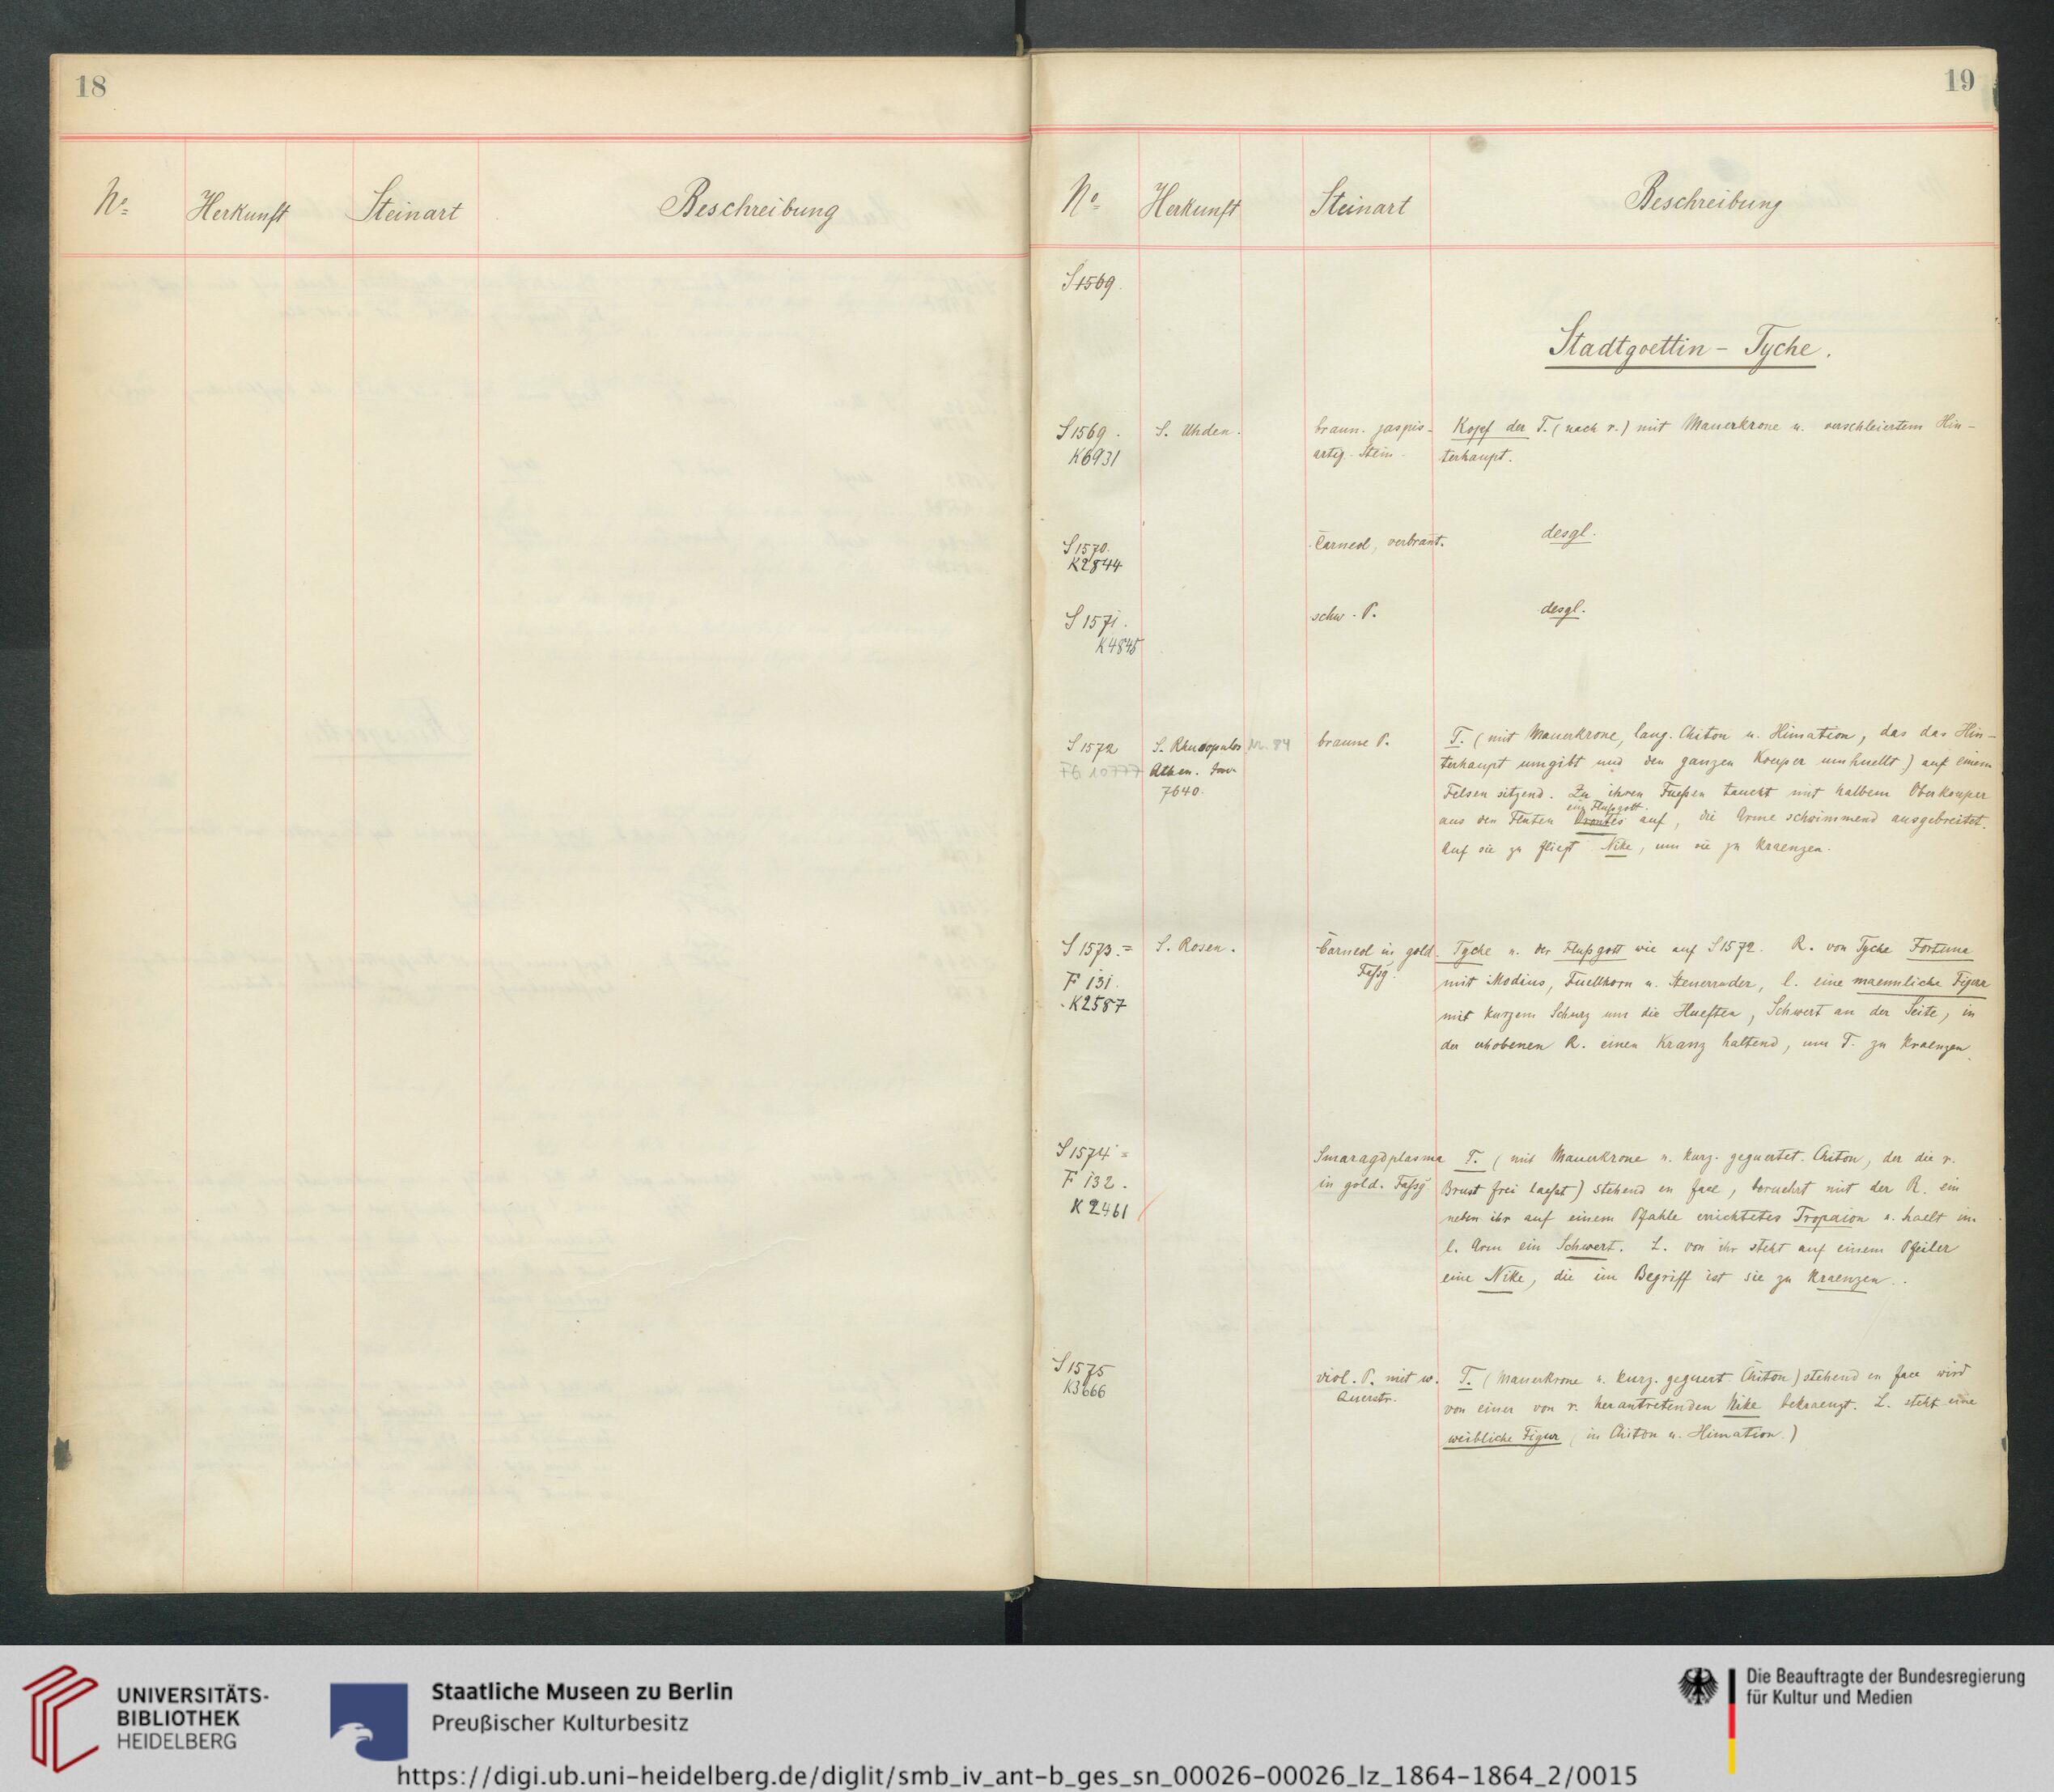 18
Nº Herkunft Steinart Beschreibung
19
Nº Herkunft Steinart Beschreibung
S1569.
Stadtgoettin – Tyche.
S1569. S. Uhden. braun. jaspis- Kopf der T. (nach r.) mit Mauerkrone u. verschleiertem Hin-
K6931 artig. Stein. terhaupt.
S1570. Carneol, verbrant. desgl.
K2844
S1571. schw. P. desgl.
K4845
S1572 S. Rhusopulos Nr. 84 braune P. T. (mit Mauerkrone, lang. Chiton u. Himation, das das Hin-
FG 10777 Athen. Inv. terhaupt umgibt und den ganzen Koerper umhuellt) auf einem
7640. Felsen sitzend. Zu ihren Fueßen taucht mit halbem Oberkoerper
ein Flußgott.
aus den Fluten Orontes auf, die Arme schwimmend ausgebreitet.
Auf sie zu fliegt Nike, um sie zu kraenzen.
S1573.= S. Rosen. Carneol in gold. Tyche u. der Flußgott wie auf S1572. R. von Tyche Fortuna
F 131. Faßg. mit Modius, Fuellhorn u. Steuerruder, l. eine maennliche Figur
K2587 mit kurzem Schurz um die Hueften, Schwert an der Seite, in
der erhobenen R. einen Kranz haltend, um T. zu kraenzen.
S1574= Smaragdplasma T. (mit Mauerkrone u. kurz. geguertet. Chiton, der die r.
F 132. in gold. Faßg Brust frei laeßt) stehend en face, beruehrt mit der R. ein
K2461 neben ihr auf einem Pfahle errichtetes Tropaion u. haelt im
l. Arm ein Schwert. L. von ihr steht auf einem Pfeiler
eine Nike, die im Begriff ist sie zu kraenzen.
S1575 viol. P. mit w. T. (Mauerkrone u. kurz. geguert Chiton) stehend en face wird
K3666 Querstr. von einer von r. herantretenden Nike bekraenzt. L. steht eine
weibliche Figur (in Chiton u. Himation.)
UNIVERSITÄTS-
BIBLIOTHEK
HEIDELBERG
Staatliche Museen zu Berlin
Preußischer Kulturbesitz
Die Beauftragte der Bundesregierung
für Kultur und Medien
https://digi.ub.uni-heidelberg.de/diglit/smb_iv_ant-b_ges_sn_00026-00026_lz_1864-1864_2/0015